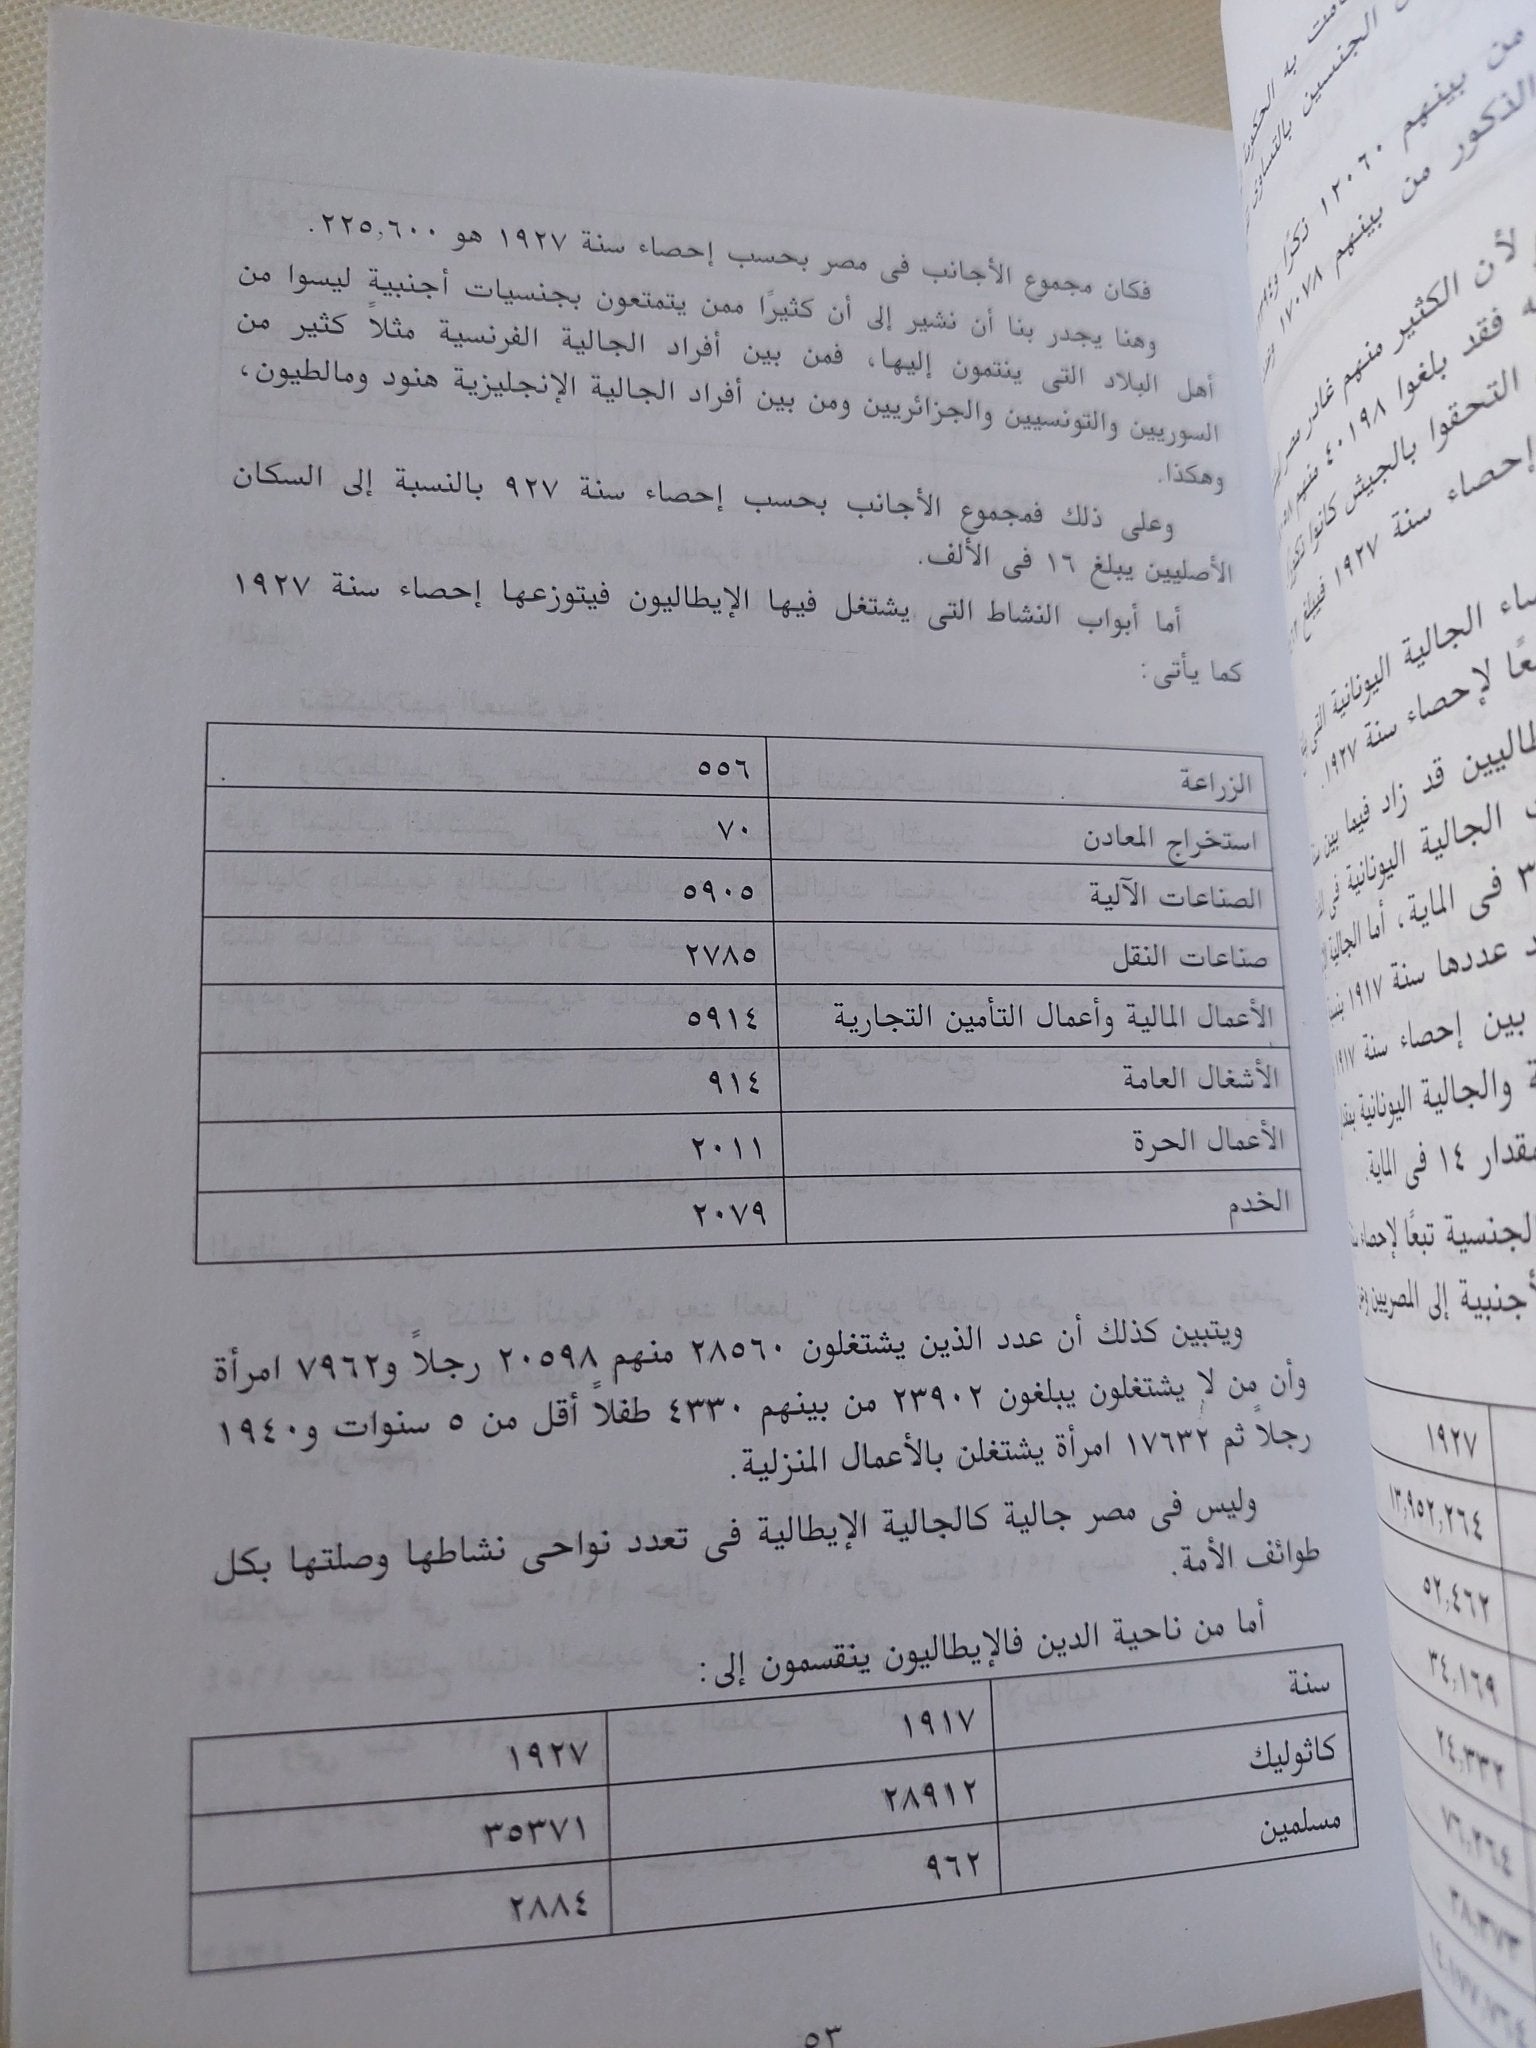 فكان مجموع الأجانب فى مصر بحسب إحصاء سنة ١٩٢٧ هو ٢٢٥,٦٠٠.
وهنا يجدر بنا أن نشير إلى أن كثيرًا ممن يتمتعون بجنسيات أجنبية ليسوا من
أهل البلاد التى ينتمون إليها، فمن بين أفراد الجالية الفرنسية مثلاً كثير من
السوريين والتونسيين والجزائريين ومن بين أفراد الجالية الإنجليزية هنود ومالطيون،
وهكذا.
وعلى ذلك فمجموع الأجانب بحسب إحصاء سنة ٩٢٧ بالنسبة إلى السكان
الأصليين يبلغ ١٦ فى الألف.
أما أبواب النشاط التى يشتغل فيها الإيطاليون فيتوزعها إحصاء سنة ١٩٢٧
كما يأتى:
الزراعة ٥٥٦
استخراج المعادن ٧٠
الصناعات الآلية ٥٩٠٥
صناعات النقل ٢٧٨٥
الأعمال المالية وأعمال التأمين التجارية ٥٩١٤
الأشغال العامة ٩١٤
الأعمال الحرة ٢٠١١
الخدم ٢٠٧٩
ويتبين كذلك أن عدد الذين يشتغلون ٢٨٥٦٠ منهم ٢٠٥٩٨ رجلاً و٧٩٦٢ امرأة
وأن من لا يشتغلون يبلغون ٢٣٩٠٢ من بينهم ٤٣٣٠ طفلاً أقل من ٥ سنوات و١٩٤٠
رجلاً ثم ١٧٦٣٢ امرأة يشتغلن بالأعمال المنزلية.
وليس فى مصر جالية كالجالية الإيطالية فى تعدد نواحى نشاطها وصلتها بكل
طوائف الأمة.
أما من ناحية الدين فالإيطاليون ينقسمون إلى:
سنة ١٩١٧ ١٩٢٧
كاثوليك ٢٨٩١٢ ٣٥٣٧١
مسلمين ٩٦٢ ٢٨٨٤
٥٣
الجنسين بالتساوى
من بينهم ١٢٠٦٠ ذكرًا
الذكور من بينهم ١٧٠٧٨
لأن الكثير منهم غادر مصر
فقد بلغوا ٤٠١٩٨ منهم
التحقوا بالجيش كانوا
إحصاء سنة ١٩٢٧ فيبلغ
الجالية اليونانية التى
لإحصاء سنة ١٩٢٧.
قد زاد فيما بين
الجالية اليونانية فى
فى الماية، أما الجالية
عددها سنة ١٩١٧
بين إحصاء سنة ١٩١٧
والجالية اليونانية بمقدار
١٤ فى الماية.
الجنسية تبعًا لإحصاء
إلى المصريين
١٩٢٧
١٣,٩٥٢,٢٦٤
٥٢,٤٦٢
٣٤,١٦٩
٢٤,٣٣٢
٧٦,٢٦٤
٣٨,٣٧٣